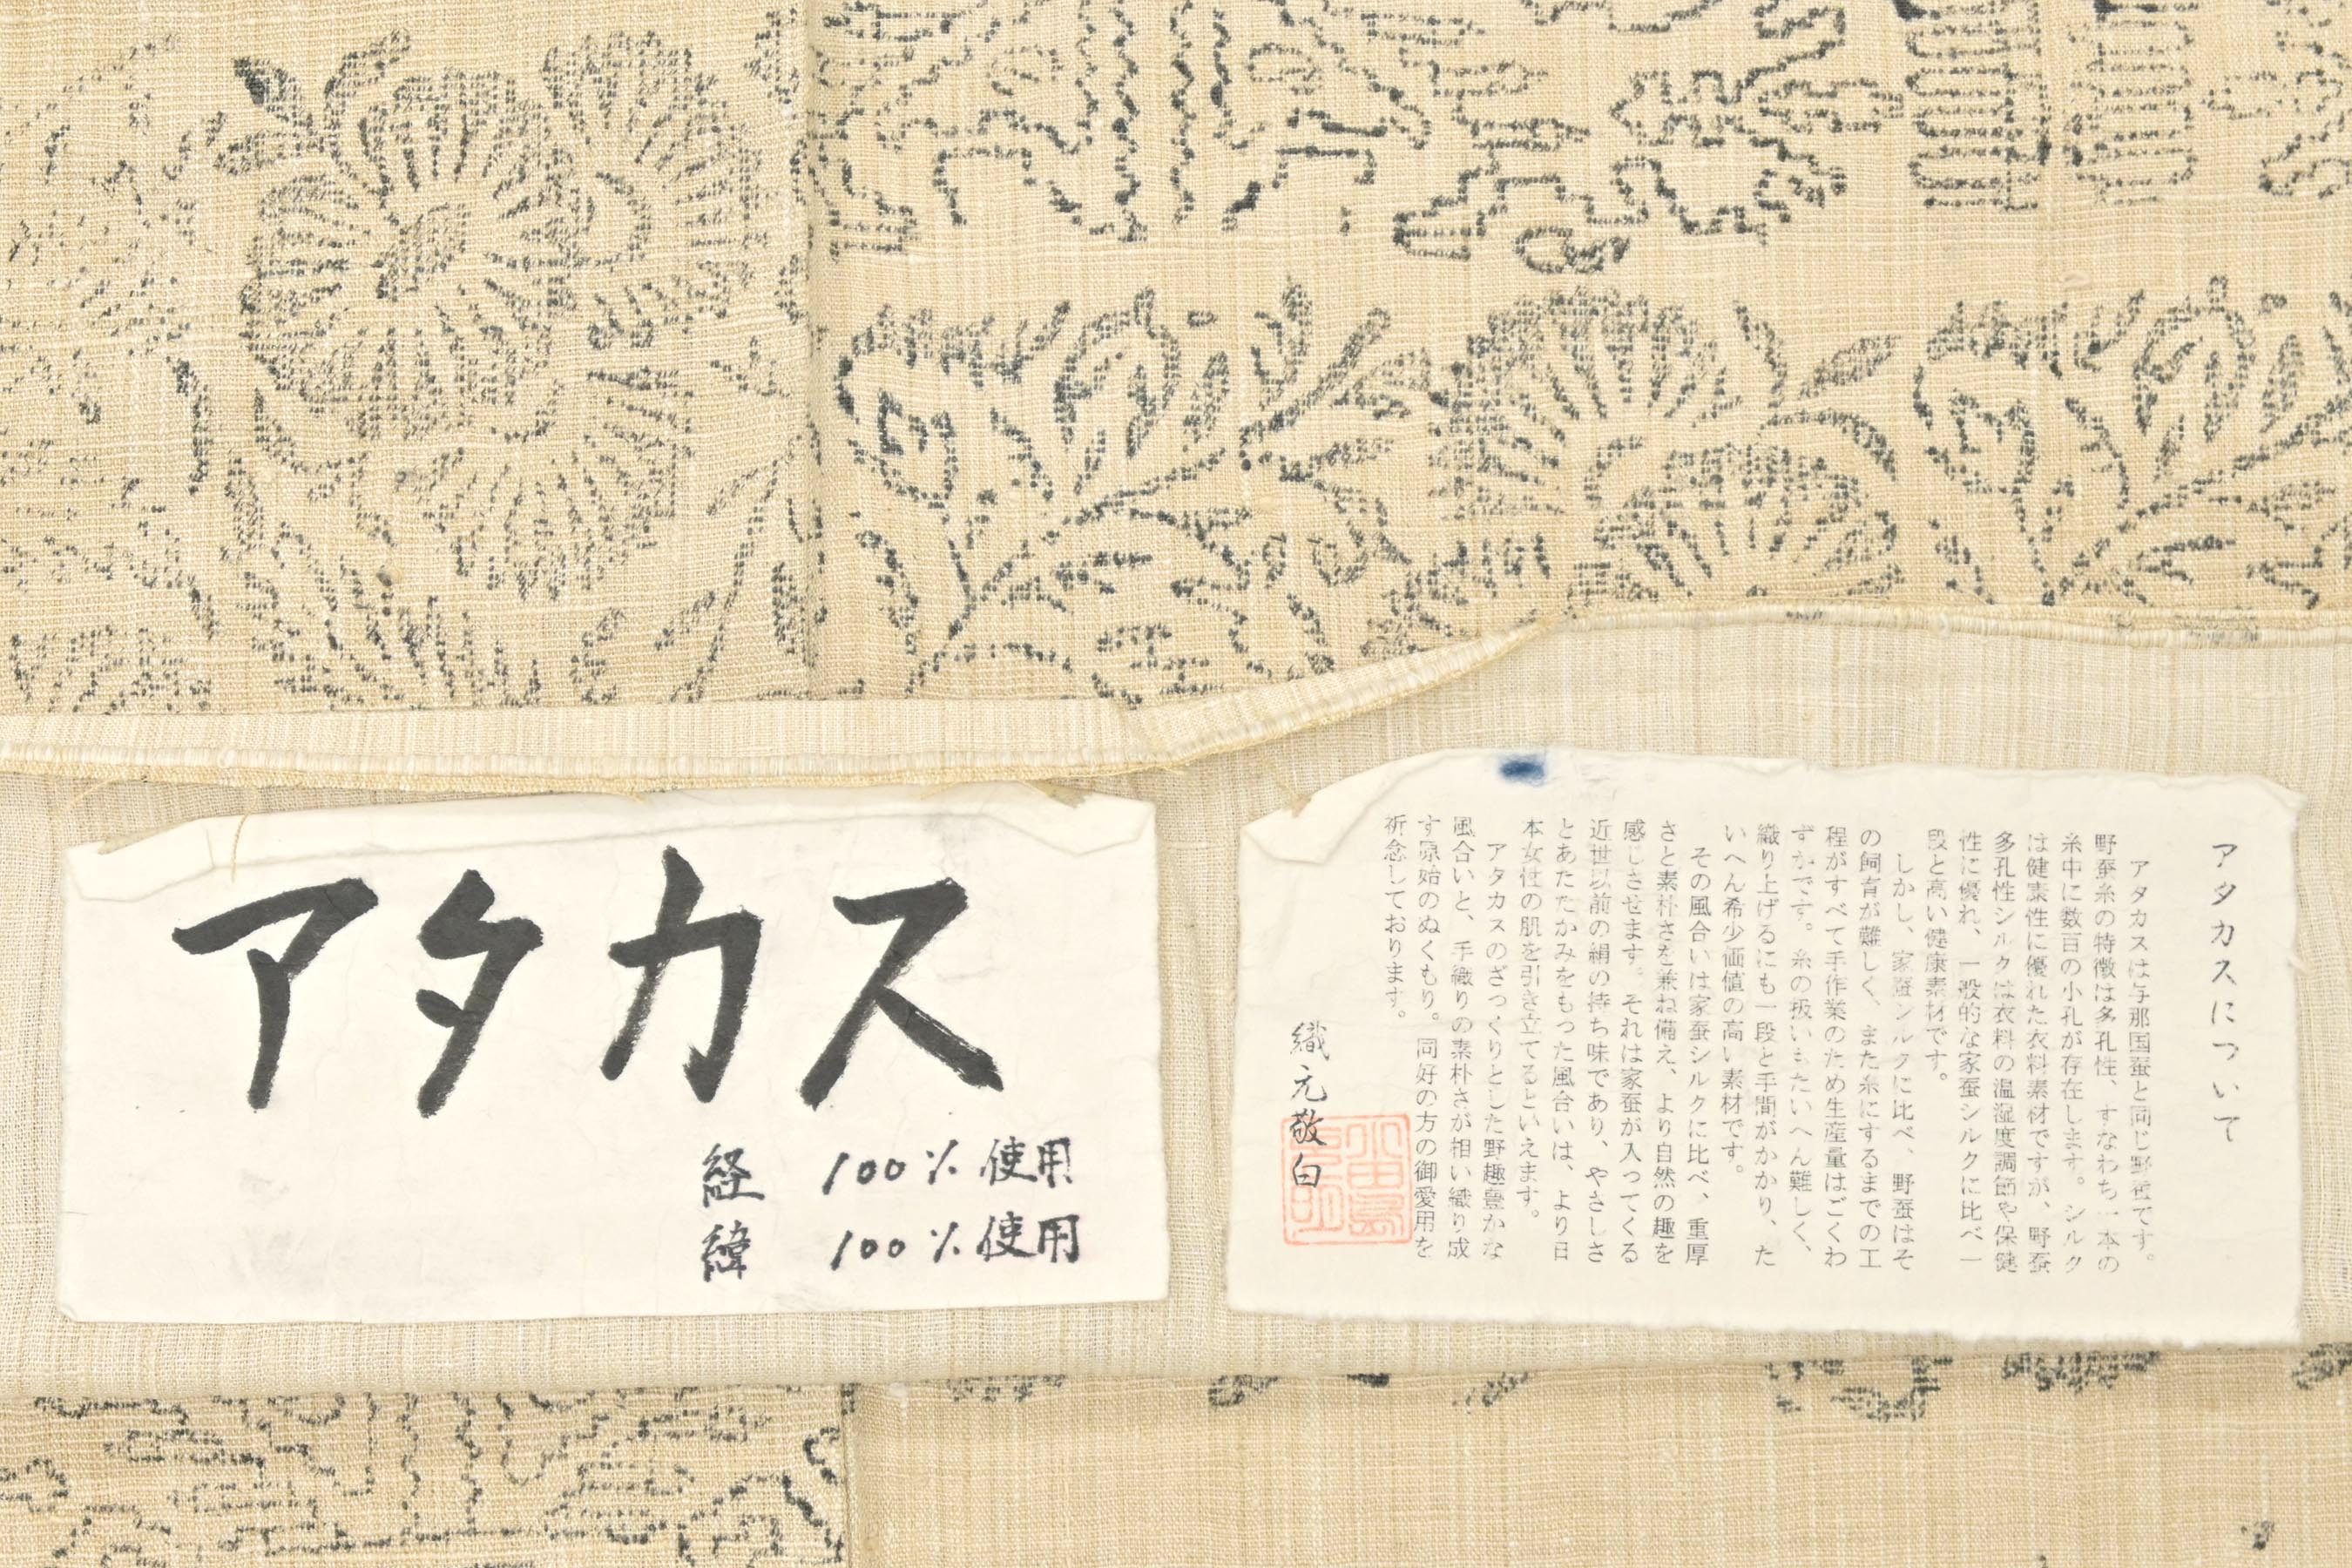 アタカス
経 100％使用
緯 100％使用
アタカスについて
アタカスは与那国蚕と同じ野蚕です。
野蚕糸の特徴は多孔性、すなわち一本の
糸中に数百の小孔が存在します。シルク
は健康性に優れた衣料素材ですが、野蚕
多孔性シルクは衣料の温湿度調節や保健
性に優れ、一般的な家蚕シルクに比べ一
段と高い健康素材です。
しかし、家蚕シルクに比べ、野蚕はそ
の飼育が難しく、また糸にするまでの工
程がすべて手作業のため生産量はごくわ
ずかです。糸の扱いもたいへん難しく、
織り上げるにも一段と手間がかかり、た
いへん希少価値の高い素材です。
その風合いは家蚕シルクに比べ、重厚
さと素朴さを兼ね備え、より自然の趣を
感じさせます。それは家蚕が入ってくる
近世以前の絹の持ち味であり、やさしさ
とあたたかみをもった風合いは、より日
本女性の肌を引き立てるといえます。
アタカスのざっくりとした野趣豊かな
風合いと、手織りの素朴さが相い織り成
す原始のぬくもり。同好の方の御愛用を
祈念しております。
織元敬白